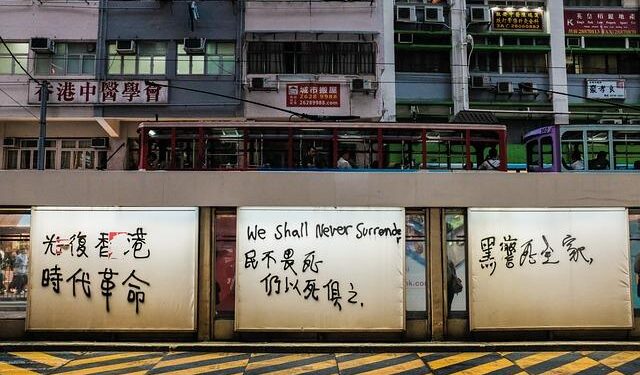 香港中醫學會
城市搬屋
光復香港
時代革命
We Shall Never Surrender
民不畏死
仍以死俱之.
黑警死全家.